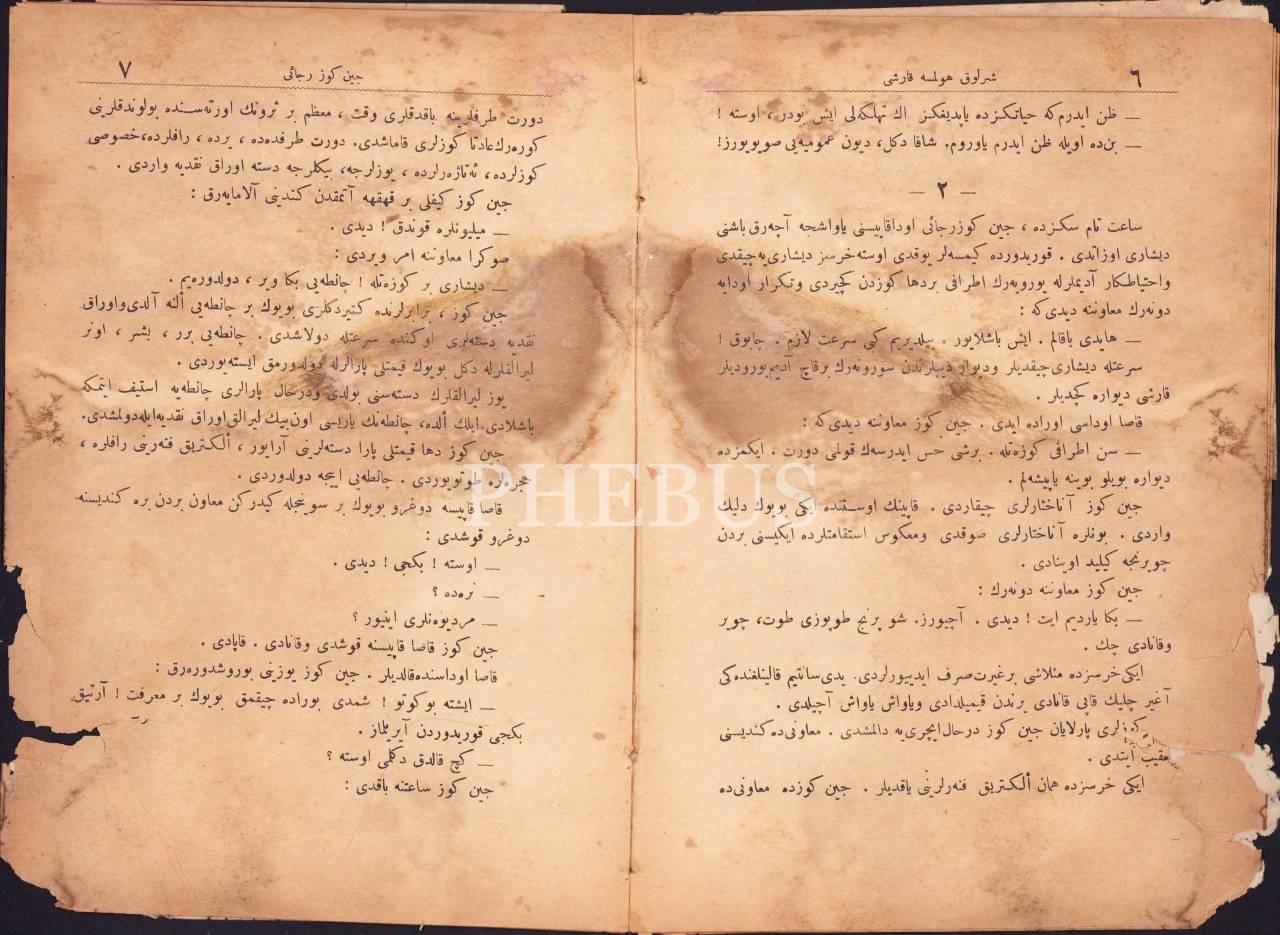 ٦
شرلوق هولمسه قارشی
— ظن ایدرم‌که حیاتکزده یاپدیغکز اك تهلکه‌لی ایش بودر ، اوسته !
— بن‌ده اویله ظن ایدرم یاوروم. شاقا دکل، دیون عمومیه‌یی صویویورز!
— ۲ —
ساعت تام سکزده ، جین کوزرجائی اوداقاپیسنی یاواشجه آچه‌رق باشنی
دیشاری اوزاتدی . قوریدورده کیمسه‌لر یوقدی اوسته‌خرسز دیشاری‌یه‌چیقدی
واحتیاطکار آدیملرله یورویه‌رك اطرافی بردها کوزدن کچیردی وتکرار اودایه
دونه‌رك معاوننه دیدی‌که :
— هایدی باقالم . ایش باشلایور . ییلدیریم کبی سرعت لازم . چابوق !
سرعتله دیشاری‌چیقدیلر ودیوار دیبلرندن سورونه‌رك برقاچ آدیم‌یورودیلر
قارشی دیواره کچدیلر .
قاصا اوداسی اوراده ایدی . جین کوز معاوننه دیدی‌که :
— سن اطرافی کوزه‌تله . برشی حس ایدرسه‌ك قولمی دورت . ایکمزده
دیواره بویلو بوینه یاپیشه‌لم .
جین کوز آناختارلری چیقاردی . قاپینك اوستنده ایکی بویوك دلیك
واردی . بونلره آناختارلری صوقدی ومعکوس استقامتلرده ایکیسنی بردن
چویرنجه کیلید اوینادی .
جین کوز معاوننه دونه‌رك :
— بکا یاردیم ایت ! دیدی . آچیورز. شو پرنج طوپوزی طوت، چویر
وقانادی چك .
ایکی خرسزده مثلاشی برغیرت‌صرف ایدییورلردی. یدی‌سانتیم قالینلغنده‌کی
آغیر چلیك قاپی قانادی یرندن قیمیلدادی ویاواش یاواش آچیلدی .
کوزلری پارلایان جین کوز درحال‌ایچری‌یه دالمشدی . معاونی‌ده کندیسنی
تعقیب ایتدی .
ایکی خرسزده همان ألکتریق فنه‌رلرینی یاقدیلر . جین کوزده معاونی‌ده
۷
جین کوز رجائی
دورت طرفلرینه باقدقلری وقت ، معظم بر ثروتك اورته‌سنده بولوندقلرینی
کوره‌رك‌عادتا کوزلری قاماشدی. دورت طرفده‌ده ، یرده ، رافلرده،خصوصی
کوزلرده، ئه‌تاژه‌رلرده ، یوزلرجه، بیکلرجه دسته اوراق نقدیه واردی .
جین کوز کیفلی بر قهقهه آتمقدن کندینی آلامایه‌رق :
— میلیونلره قوندق ! دیدی .
صوکرا معاوننه امر ویردی :
— دیشاری بر کوزه‌تله ! چانطه‌یی بکا ویر ، دولدوره‌یم .
جین کوز ، برابرلرنده کتیردکلری بویوك بر چانطه‌یی ألنه آلدی‌واوراق
نقدیه دسته‌لری اوکنده سرعتله دولاشدی . چانطه‌یی برر ، بشر ، اونر
لیرالقلرله دکل بویوك قیمتلی پارالرله دولدورمق ایسته‌یوردی .
یوز لیرالقلرك دسته‌سنی بولدی ودرحال پارالری چانطه‌یه استیف ایتمکه
باشلادی.ایلك ألده، چانطه‌نك یاریسی اون‌بیك لیرالق‌اوراق نقدیه‌ایله‌دولمشدی.
جین کوز دها قیمتلی پارا دسته‌لرینی آرایور ، ألکتریق فنه‌رینی رافلره ،
حجره‌لره طوتویوردی . چانطه‌یی اییجه دولدوردی .
قاصا قاپیسه دوغرو بویوك بر سوینجله کیدرکن معاون بردن بره کندیسنه
دوغرو قوشدی :
— اوسته ! بکجی ! دیدی .
— نره‌ده ؟
— مردیوه‌نلری اینیور ؟
جین کوز قاصا قاپیسنه قوشدی وقانادی . قاپادی .
قاصا اوداسنده‌قالدیلر . جین کوز یوزینی بوروشدوره‌رق :
— ایشته بوکوتو ! شمدی بوراده چیقمق بویوك بر معرفت ! آرتیق
بکجی قوریدوردن آیریلماز .
— کچ قالدق دکلمی اوسته ؟
جین کوز ساعتنه باقدی :
PHEBUS